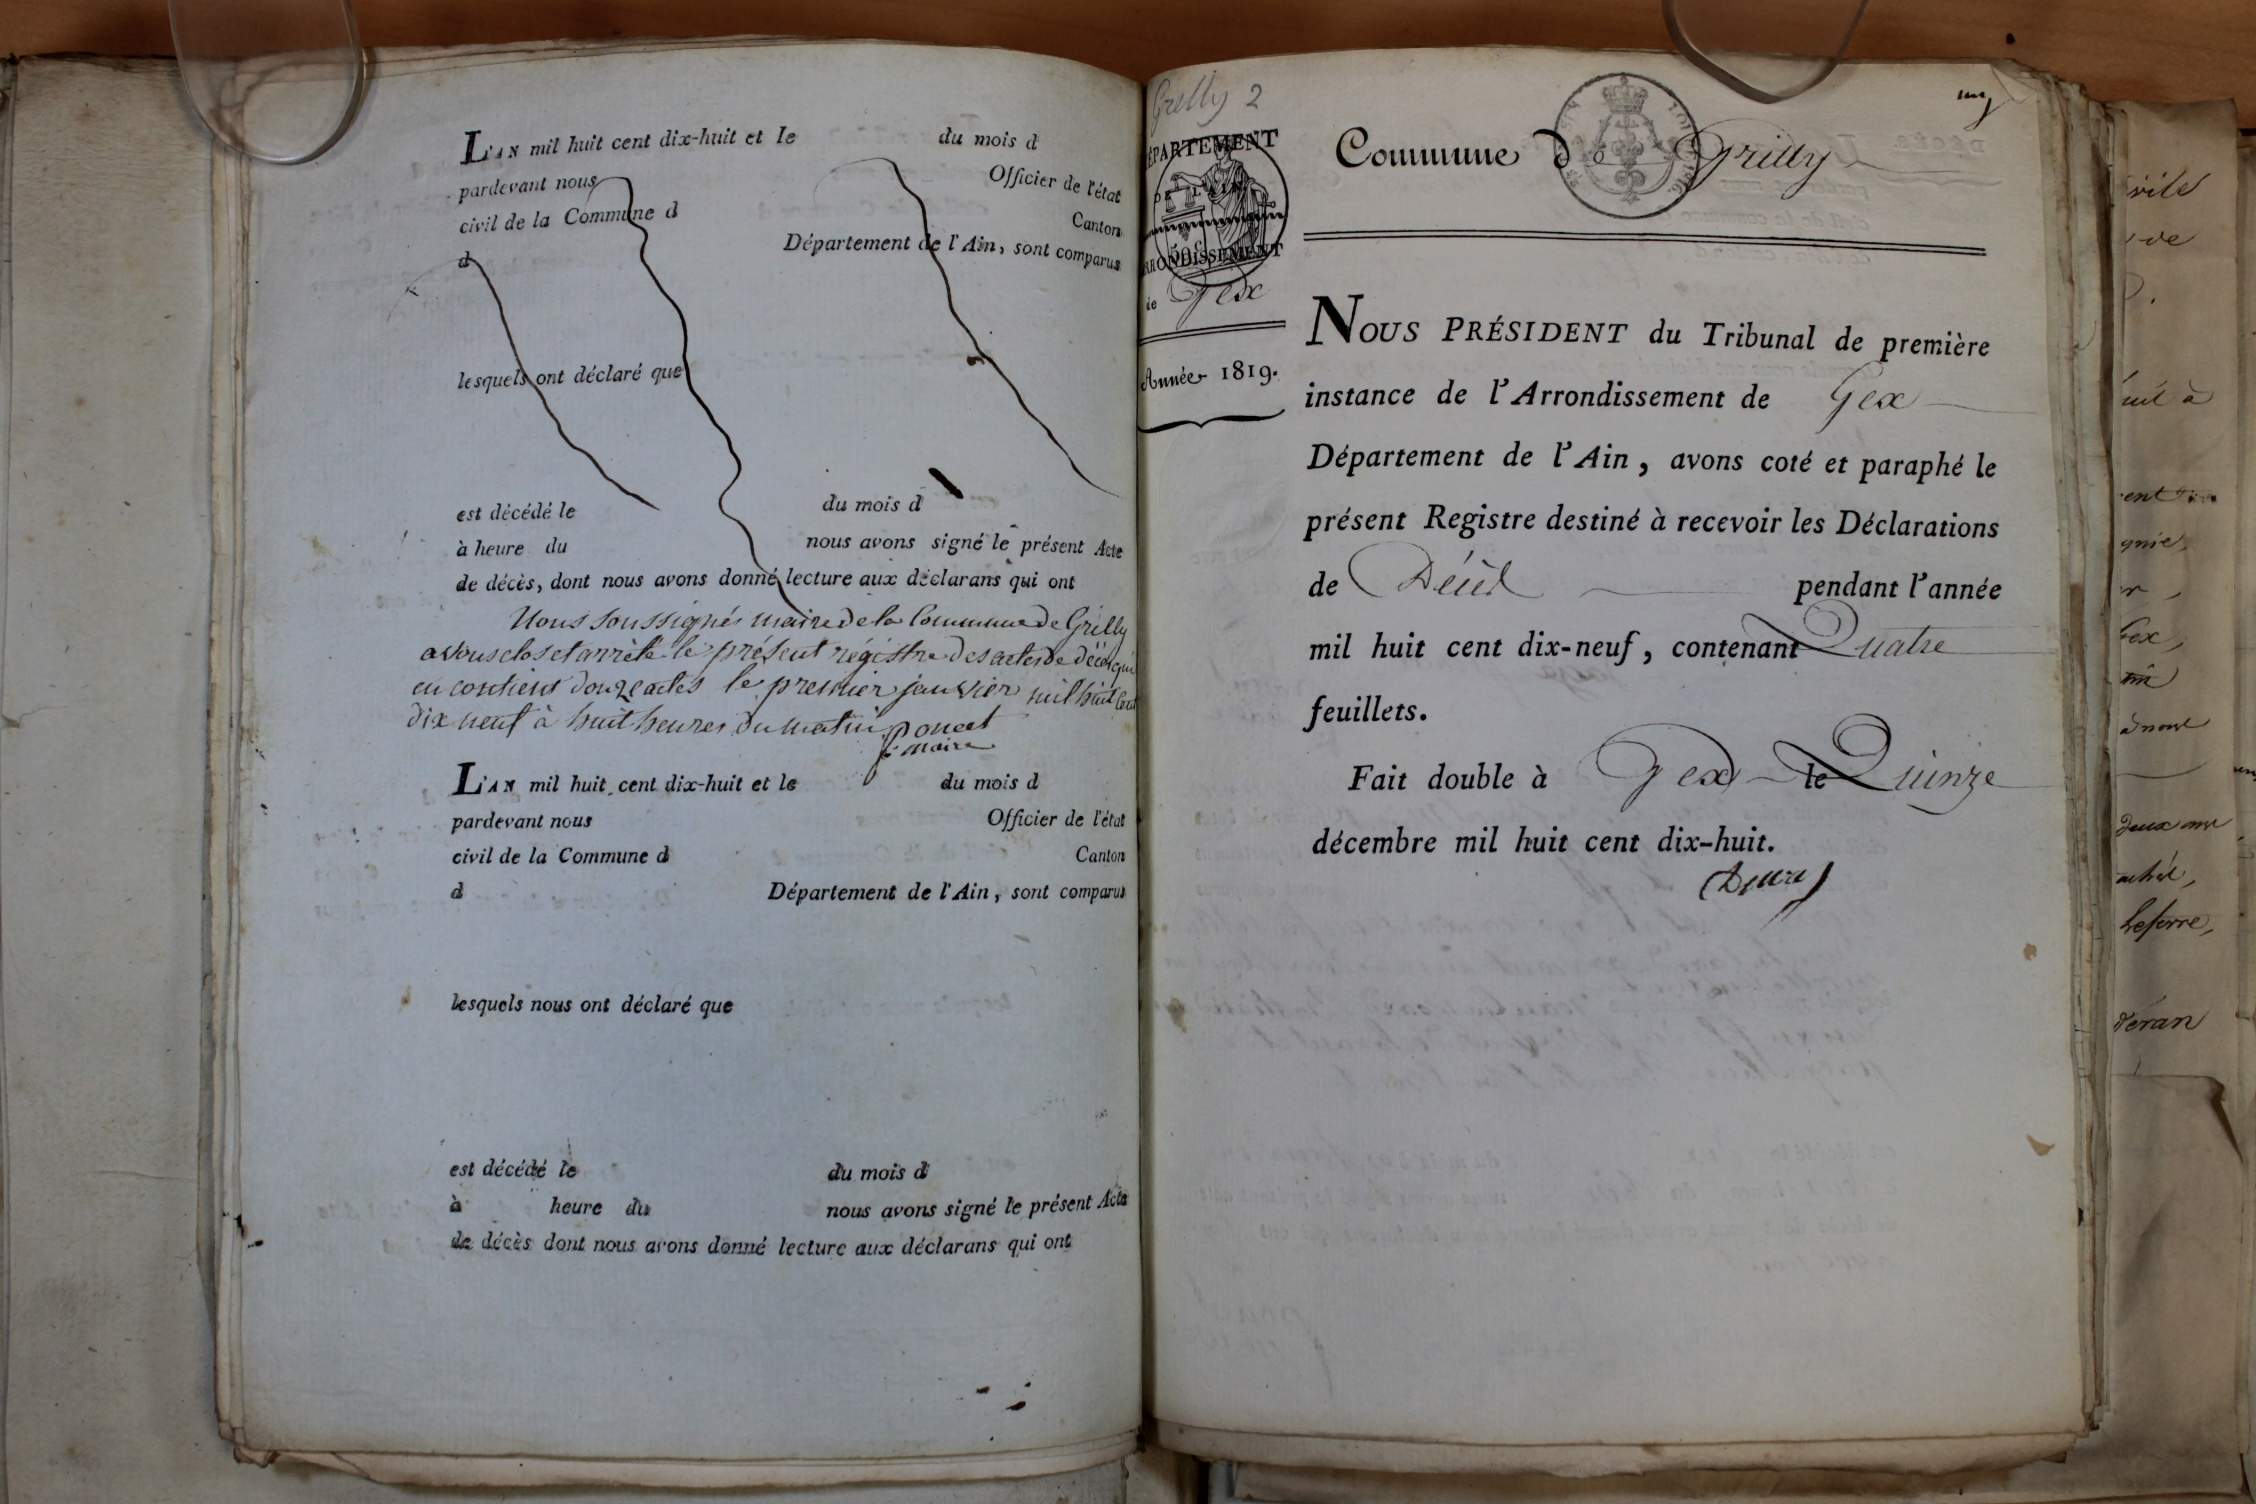 L'AN mil huit cent dix-huit et le du mois d
pardevant nous Officier de l'état
civil de la Commune d Canton
d Département de l'Ain, sont comparus
lesquels ont déclaré que
est décédé le du mois d
à heure du nous avons signé le présent Acte
de décès, dont nous avons donné lecture aux déclarans qui ont
Nous soussignés maire de la Commune de Grilly
avons clos et arrêté le présent régistre des actes de décès qui
en contient douze actes le premier janvier mil huit cent
dix neuf à huit heures du matin. Poncet
maire
L'AN mil huit cent dix-huit et le du mois d
pardevant nous Officier de l'état
civil de la Commune d Canton
d Département de l'Ain, sont comparus
lesquels nous ont déclaré que
est décédé le du mois d
à heure du nous avons signé le présent Acte
de décès dont nous avons donné lecture aux déclarans qui ont
Grilly 2
DÉPARTEMENT
ARRONDISSEMENT
de Gex
Année 1819.
Commune de Grilly
NOUS PRÉSIDENT du Tribunal de première
instance de l'Arrondissement de Gex
Département de l'Ain, avons coté et paraphé le
présent Registre destiné à recevoir les Déclarations
de Décès pendant l'année
mil huit cent dix-neuf, contenant Quatre
feuillets.
Fait double à Gex le Quinze
décembre mil huit cent dix-huit.